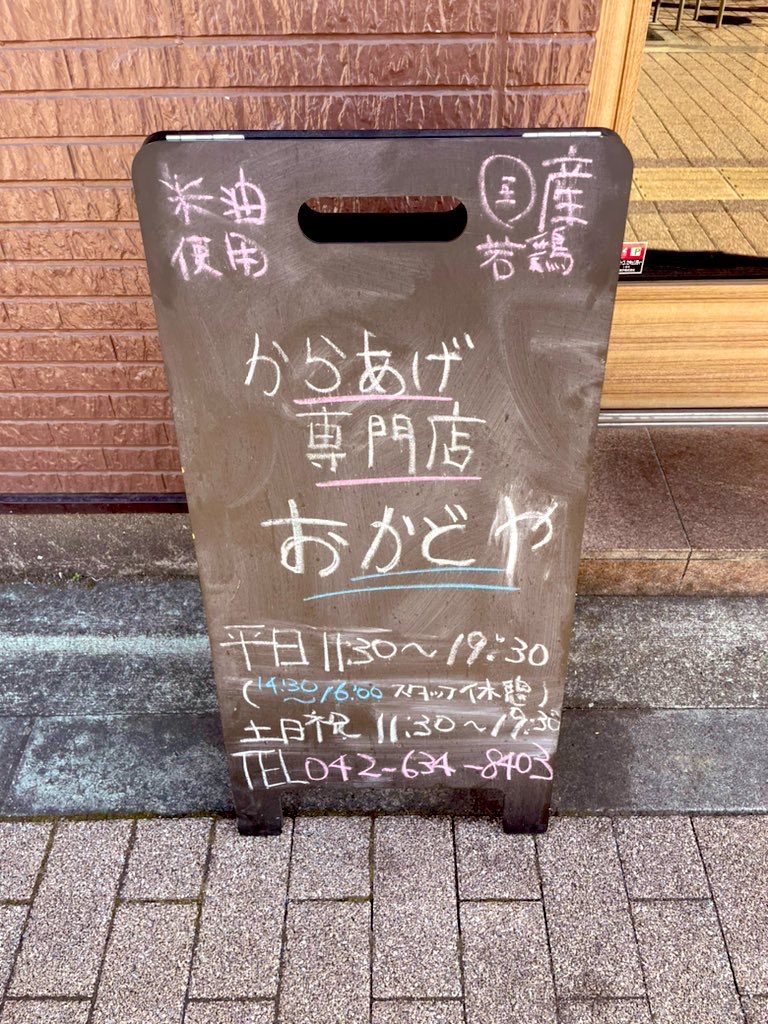 米油
使用
国産
若鶏
からあげ
専門店
おかどや
平日 11:30〜19:30
(14:30〜16:00 スタッフ休憩)
土日祝 11:30〜19:30
TEL 042-634-8403